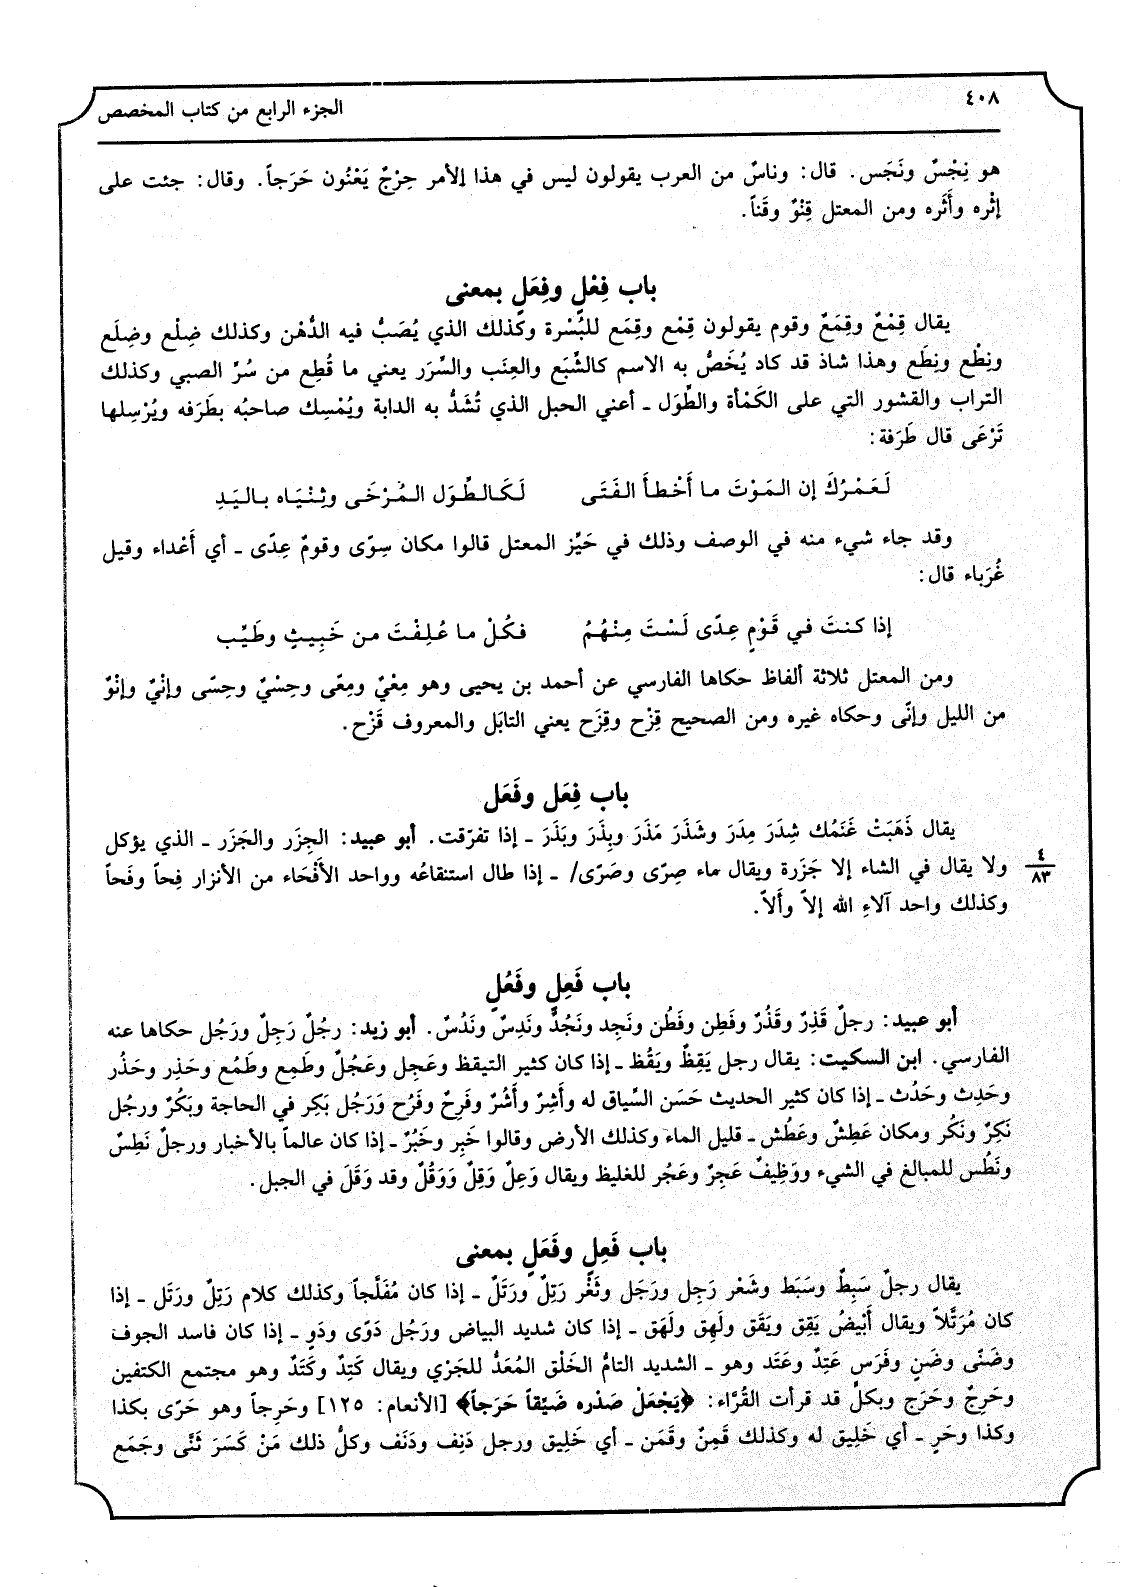 ٤٠٨
الجزء الرابع من كتاب المخصص
هو نِجْسٌ ونَجَس. قال: وناسٌ من العرب يقولون ليس في هذا الأمر حِرْجٌ يَعْنُون حَرَجاً. وقال: جئت على
إثْره وأَثَره ومن المعتل قِنْوٌ وقَناً.
باب فِعْلٍ وفِعَلٍ بمعنى
يقال قِمْعٌ وقِمَعٌ وقوم يقولون قِمْع وقِمَع للبُسْرة وكذلك الذي يُصَبُّ فيه الدُّهْن وكذلك ضِلْع وضِلَع
ونِطْع ونِطَع وهذا شاذ قد كاد يُخَصُّ به الاسم كالشِّبَع والعِنَب والسِّرَر يعني ما قُطِع من سُرِّ الصبي وكذلك
التراب والقشور التي على الكَمْأة والطِّوَل ـ أعني الحبل الذي تُشَدُّ به الدابة ويُمْسِك صاحبُه بطَرَفه ويُرْسِلها
تَرْعَى قال طَرَفة:
لَعَمْرُكَ إن المَوْتَ ما أَخْطأَ الفَتَى لَكَالطِّوَل المُرْخَى وثِنْيَاه باليَدِ
وقد جاء شيء منه في الوصف وذلك في حَيِّز المعتل قالوا مكان سِوًى وقومٌ عِدًى ـ أي أَعْداء وقيل
غُرَباء قال:
إذا كنتَ في قَوْمٍ عِدًى لَسْتَ مِنْهُمُ فكُلْ ما عُلِفْتَ من خَبِيثٍ وطَيِّب
ومن المعتل ثلاثة ألفاظ حكاها الفارسي عن أحمد بن يحيى وهو مِعْيٌ ومِعًى وحِسْيٌ وحِسًى وإنْيٌ وإنْوٌ
من الليل وإنًى وحكاه غيره ومن الصحيح قِزْح وقِزَح يعني التابَل والمعروف قَزْح.
باب فِعَل وفَعَل
يقال ذَهَبَتْ غَنَمُك شِذَرَ مِذَرَ وشَذَرَ مَذَرَ وبِذَرَ وبَذَرَ ـ إذا تفرّقت. أبو عبيد: الجِزَر والجَزَر ـ الذي يؤكل
ولا يقال في الشاء إلا جَزَرة ويقال ماء صِرًى وصَرًى/ ـ إذا طال استنقاعُه وواحد الأَفْحَاء من الأنزار فِحاً وفَحاً
٤
٨٣
وكذلك واحد آلاءِ الله إلاً وأَلاً.
باب فَعِلٍ وفَعُلٍ
أبو عبيد: رجلٌ قَذِرٌ وقَذُرٌ وفَطِن وفَطُن ونَجِد ونَجُدٌ ونَدِسٌ ونَدُسٌ. أبو زيد: رجُلٌ رَجِلٌ ورَجُل حكاها عنه
الفارسي. ابن السكيت: يقال رجل يَقِظٌ ويَقُظ ـ إذا كان كثير التيقظ وعَجِل وعَجُلٌ وطَمِع وطَمُع وحَذِر وحَذُر
وحَدِث وحَدُث ـ إذا كان كثير الحديث حَسَن السِّياق له وأَشِرٌ وأَشُرٌ وفَرِحٌ وفَرُح وَرَجُل بَكِر في الحاجة وبَكُرٌ ورجُل
نَكِرٌ ونَكُر ومكان عَطِشٌ وعَطُش ـ قليل الماء وكذلك الأرض وقالوا خَبِر وخَبُرٌ ـ إذا كان عالماً بالأخبار ورجلٌ نَطِسٌ
ونَطُس للمبالغ في الشيء ووَظِيفٌ عَجِرٌ وعَجُر للغليظ ويقال وَعِلٌ وَقِلٌ وَوَقُلٌ وقد وَقَلَ في الجبل.
باب فَعِلٍ وفَعَلٍ بمعنى
يقال رجلٌ سَبِطٌ وسَبَط وشَعْر رَجِل ورَجَل وثَغْر رَتِلٌ ورَتَلٌ ـ إذا كان مُفَلَّجاً وكذلك كلام رَتِلٌ ورَتَل ـ إذا
كان مُرَتَّلاً ويقال أَبْيضُ يَقِق ويَقَق ولَهِق ولَهَق ـ إذا كان شديد البياض ورَجُل دَوًى ودَوٍ ـ إذا كان فاسد الجوف
وضَنًى وضَنٍ وفَرَس عَتِدٌ وعَتَد وهو ـ الشديد التامُّ الخَلْق المُعَدُّ للجَرْي ويقال كَتِدٌ وكَتَدٌ وهو مجتمع الكتفين
وحَرِجٌ وحَرَج وبكلٍّ قد قرأت القُرَّاء: ﴿يَجْعَلْ صَدْره ضَيِّقاً حَرَجاً﴾ [الأنعام: ١٢٥] وحَرِجاً وهو حَرًى بكذا
وكذا وحَرٍ ـ أي خَلِيق له وكذلك قَمِنٌ وقَمَن ـ أي خَلِيق ورجل دَنِف ودَنَف وكلُّ ذلك مَنْ كَسَرَ ثَنَّى وجَمَع